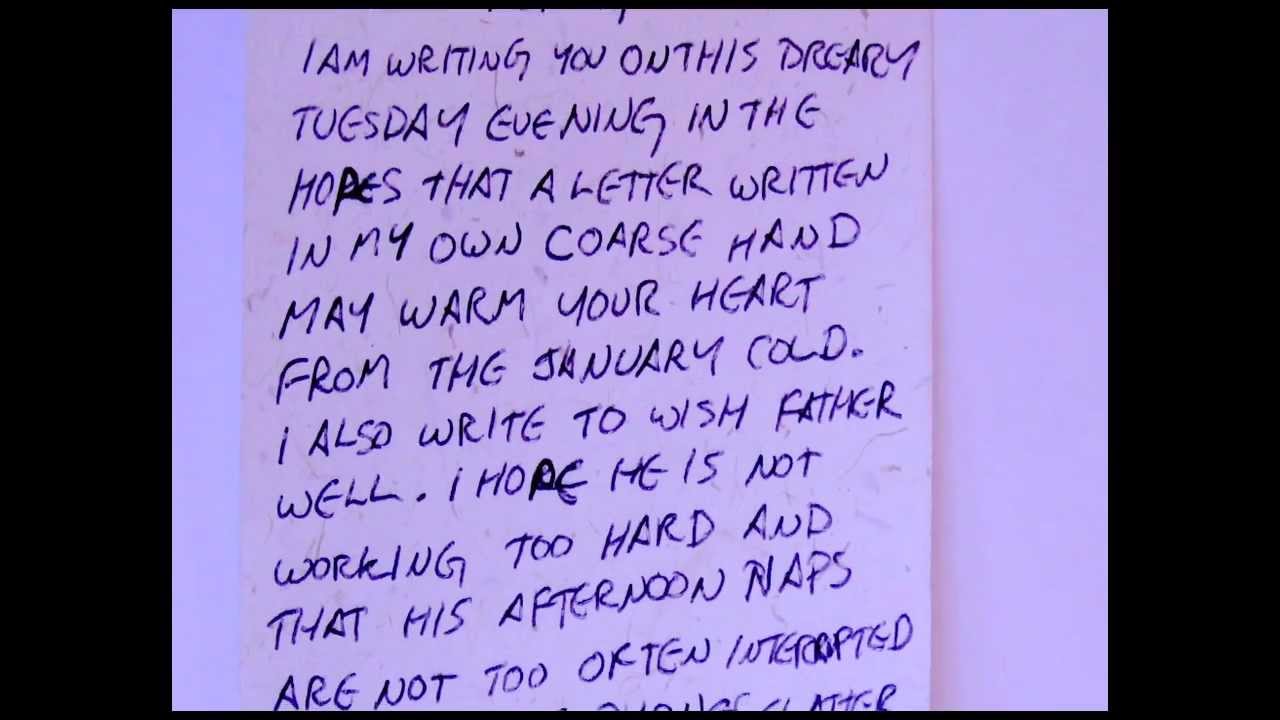 I AM WRITING YOU ON THIS DREARY
TUESDAY EVENING IN THE
HOPES THAT A LETTER WRITTEN
IN MY OWN COARSE HAND
MAY WARM YOUR HEART
FROM THE JANUARY COLD.
I ALSO WRITE TO WISH FATHER
WELL. I HOPE HE IS NOT
WORKING TOO HARD AND
THAT HIS AFTERNOON NAPS
ARE NOT TOO OFTEN INTERRUPTED
CLATTER